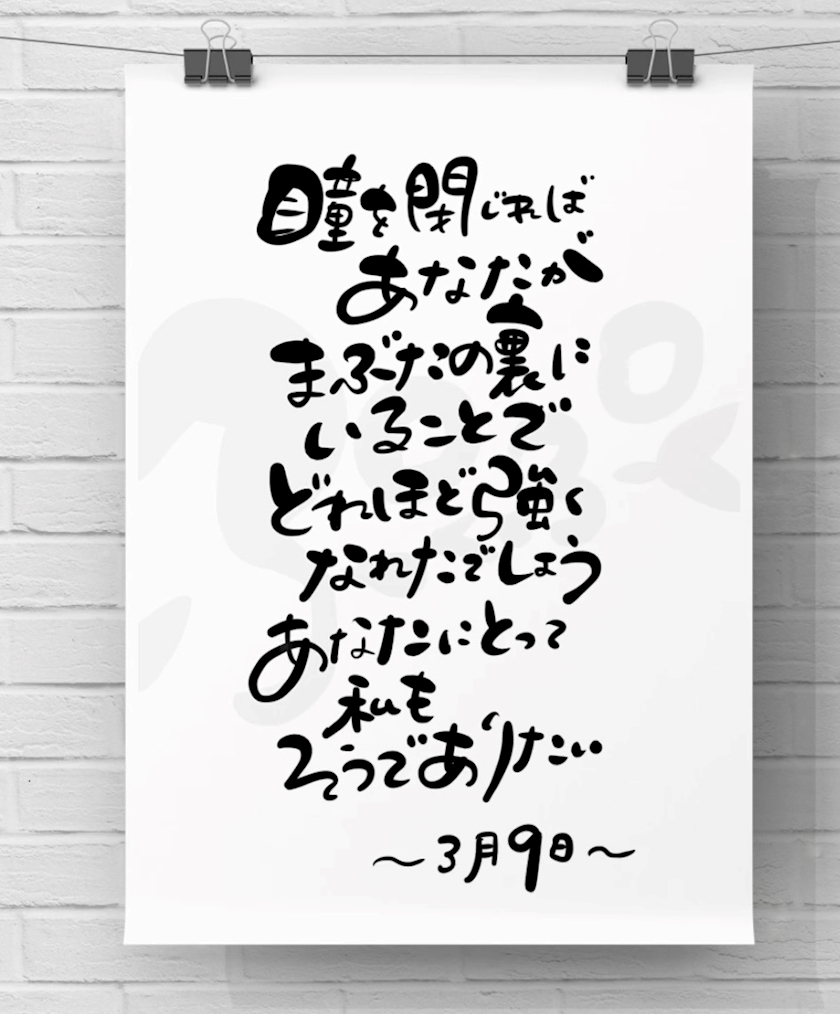 瞳を閉じれば
あなたが
まぶたの裏に
いることで
どれほど強く
なれたでしょう
あなたにとって
私も
そうでありたい
～3月9日～